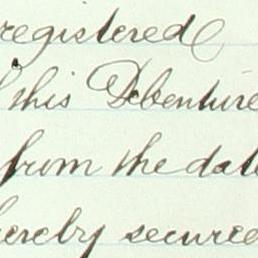 registered
this Debenture
from the date
hereby secured